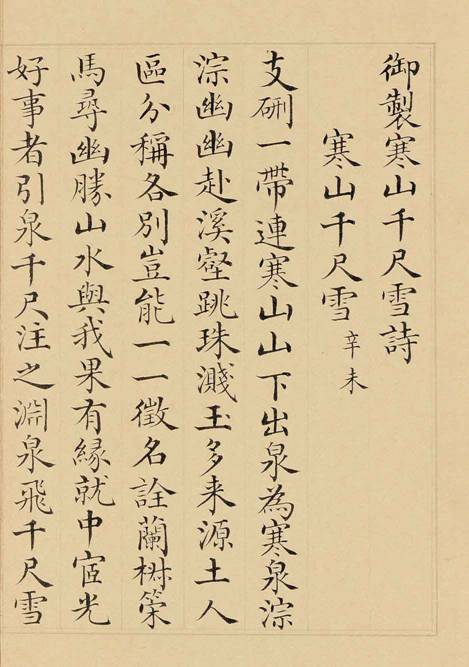 御製寒山千尺雪詩
寒山千尺雪 辛未
支硎一帶連寒山山下出泉為寒泉淙
淙幽幽赴溪壑跳珠濺玉多来源土人
區分稱各別豈能一一徵名詮蘭椒策
馬尋幽勝山水與我果有緣就中宧光
好事者引泉千尺注之淵泉飛千尺雪